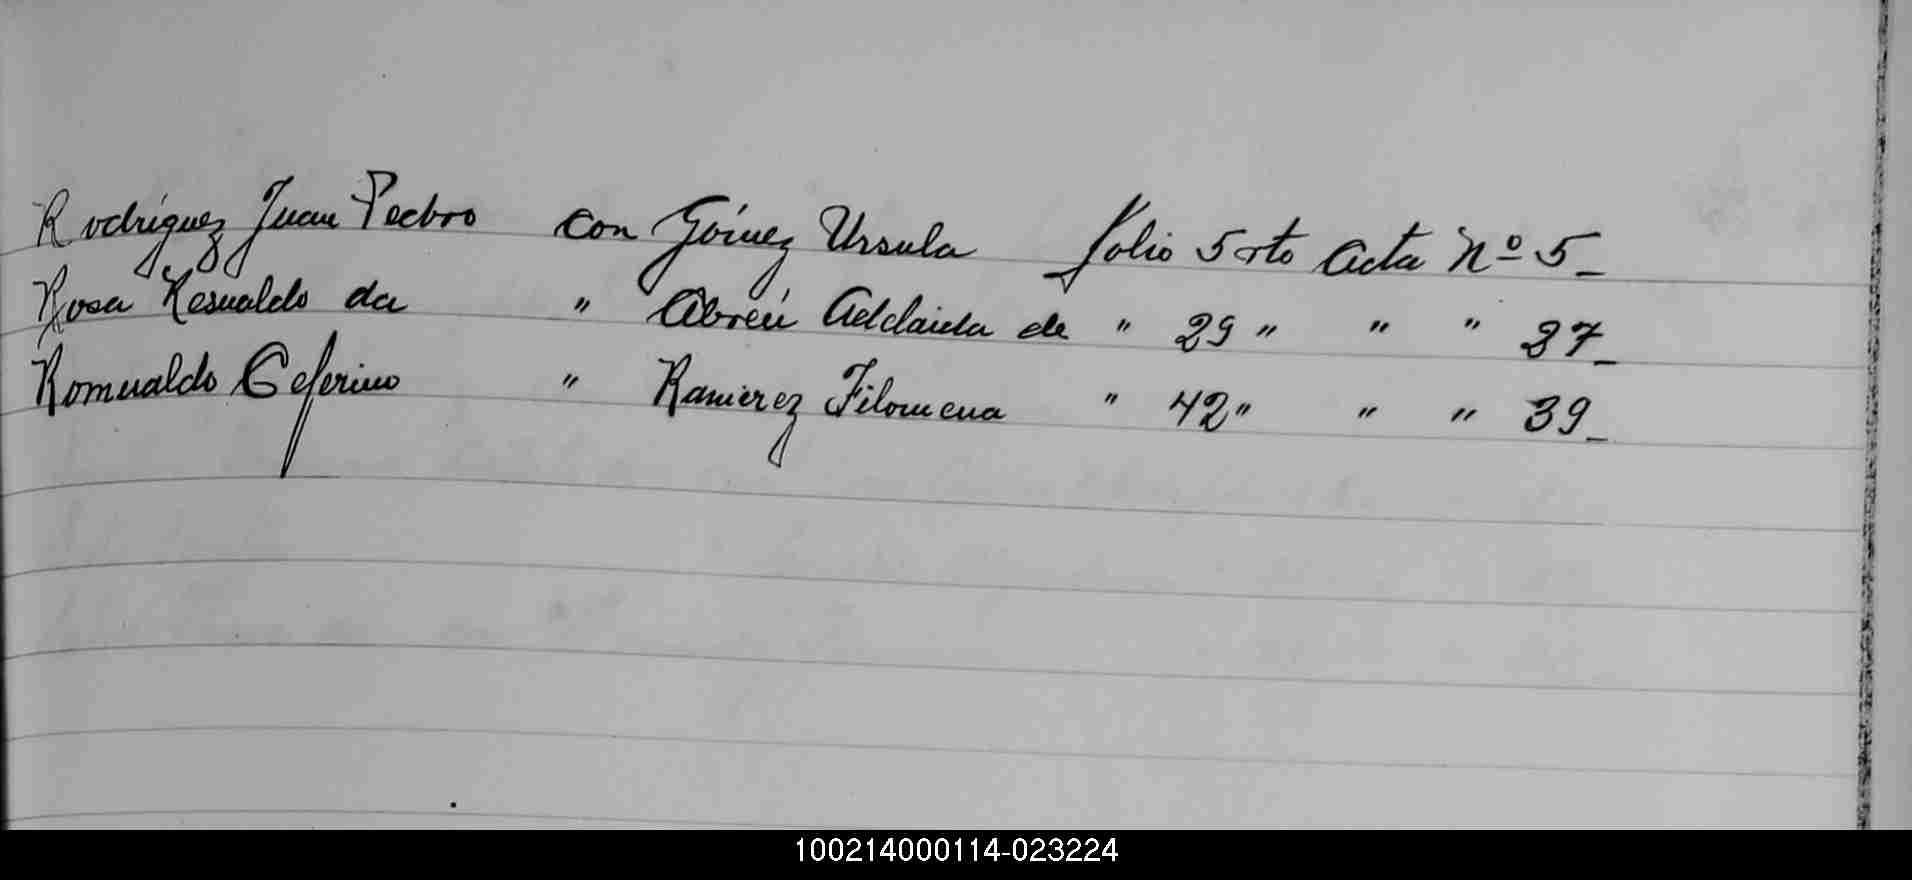 Rodríguez Juan Pedro con Gómez Ursula folio 5 vto acta Nº 5_
Rosa Resualdo da " Abreú Adelaida de " 29 " " " 27_
Romualdo Ceferino " Ramirez Filomena " 42 " " " 39_
100214000114-023224